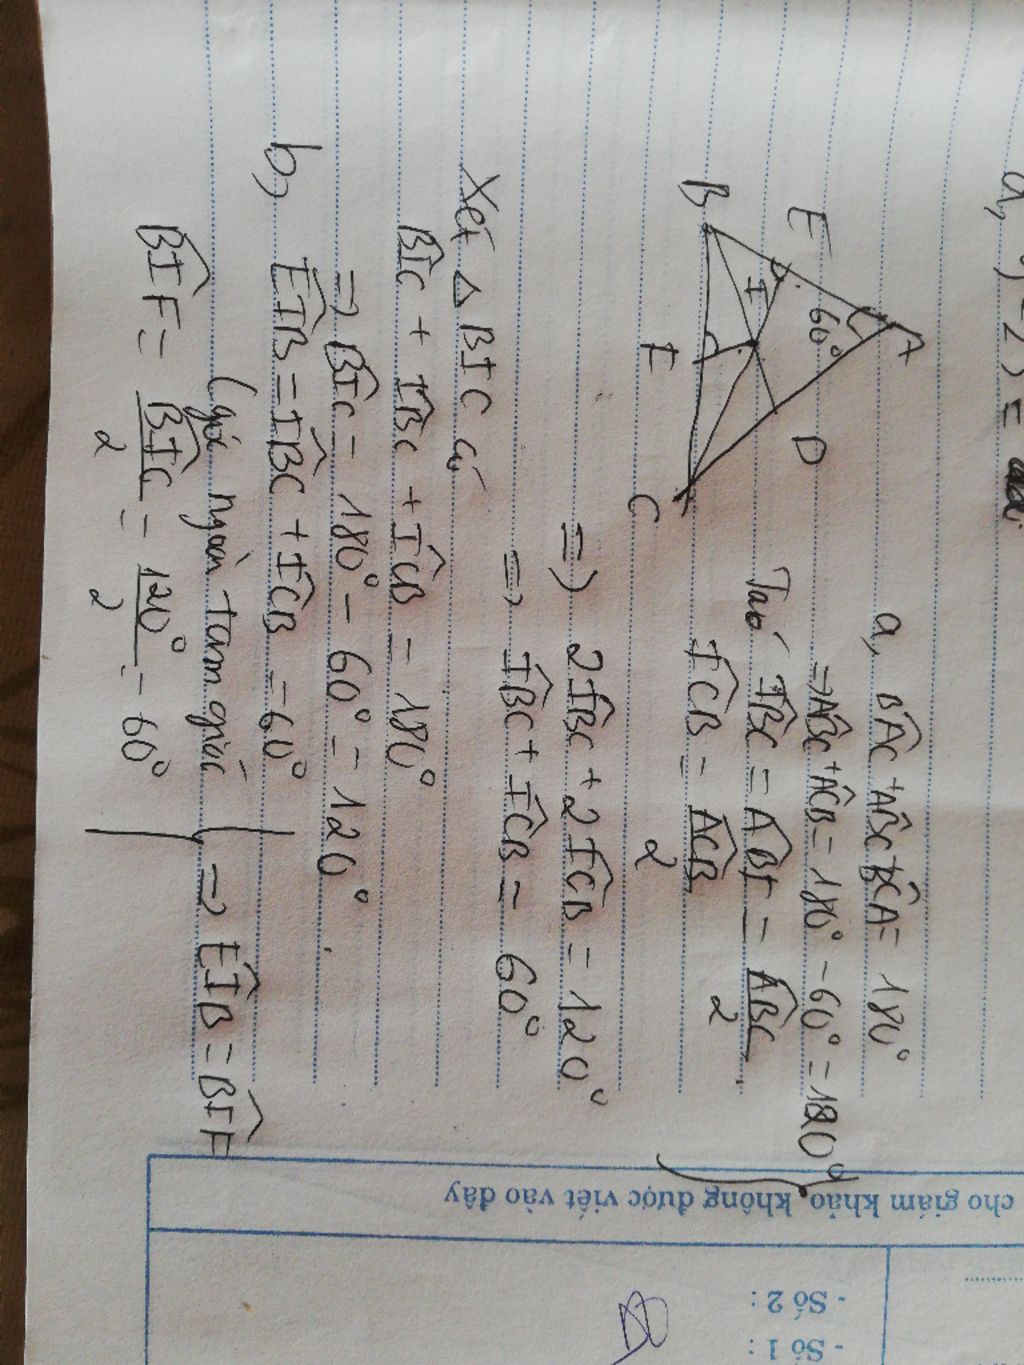 a,
A
60°
E
D
I
B
E
C
a, BÂC + AB̂C + BĈA = 180°
⇒ AB̂C + AĈB = 180° - 60° = 120°
Ta có IB̂C = AB̂I = AB̂C / 2
IĈB = AĈB / 2
⇒ 2IB̂C + 2IĈB = 120°
⇒ IB̂C + IĈB = 60°
Xét △ BIC có
BÎC + IB̂C + IĈB = 180°
⇒ BÎC = 180° - 60° = 120°.
b, EÎB = IB̂C + IĈB = 60°
(góc ngoài tam giác
⇒ EÎB = BÎF
BÎF = BÎC / 2 = 120° / 2 = 60°
cho giám khảo, không được viết vào đây
- Số 2 :
- Số 1 :